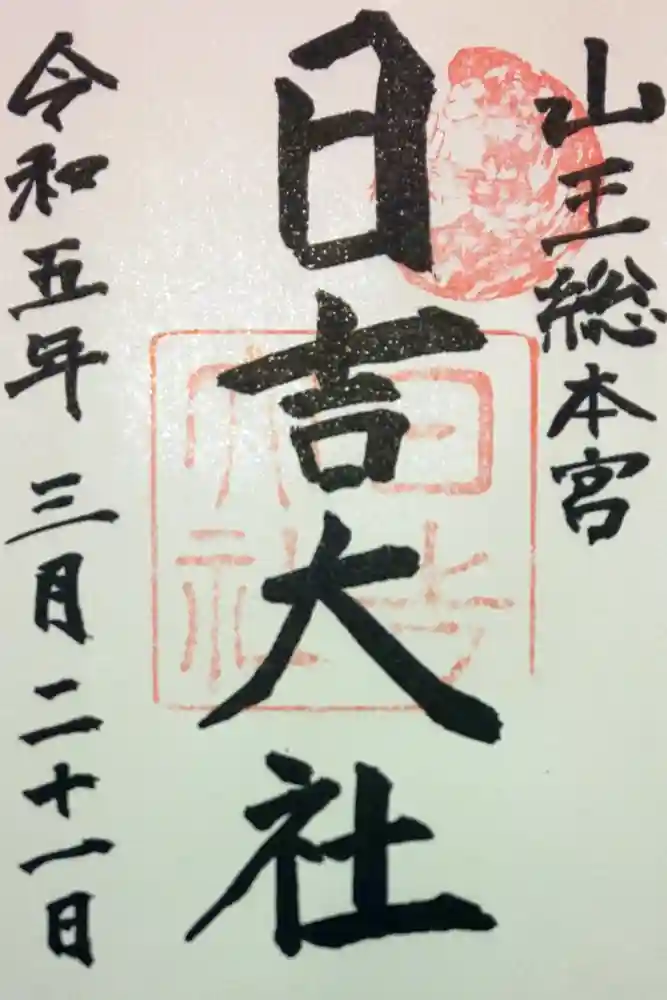 山王総本宮
日吉大社
日吉
大社
令和五年三月二十一日